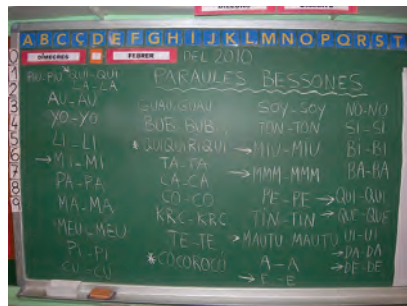 A B C Ç D E F G H I J K L M N O P Q R S T
DIMECRES FEBRER DEL 2010
0
1
2
3
4
5
6
7
8
9
PARAULES BESSONES
PIU-PIU * QUI-QUI
LA-LA
AU-AU
YO-YO
LI-LI
→ MI-MI
PA-PA
MA-MA
MEU-MEU
PI-PI
CU-CU
GUAU GUAU
BUB-BUB
* QUIQUIRIQUI
TA-TA
CA-CA
CO-CO
KRC-KRC
TE-TE
* COCOROCÓ
SOY-SOY
TON-TON
→ MIU-MIU
→ MMM-MMM
PE-PE
TIN-TIN
→ MAUTU MAUTU
A-A
→ E-E
NO-NO
SI-SI
BI-BI
BA-BA
→ QUI-QUI
→ QUE-QUE
UI-UI
→ DA-DA
→ DE-DE